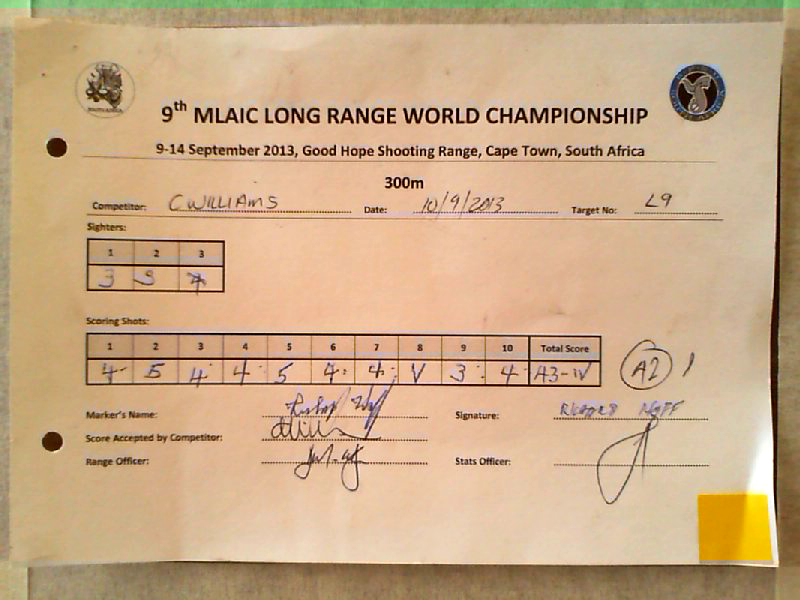 SOUTH AFRICA
9th MLAIC LONG RANGE WORLD CHAMPIONSHIP
9-14 September 2013, Good Hope Shooting Range, Cape Town, South Africa
300m
Competitor: C WILLIAMS Date: 10/9/2013 Target No: L9
Sighters:
1 2 3
3 5
Scoring Shots:
1 2 3 4 5 6 7 8 9 10 Total Score
4 5 4 4 5 4 4 V 3 4 A3-IV A2 1
Marker's Name: Signature:
Score Accepted by Competitor:
Range Officer: Stats Officer: